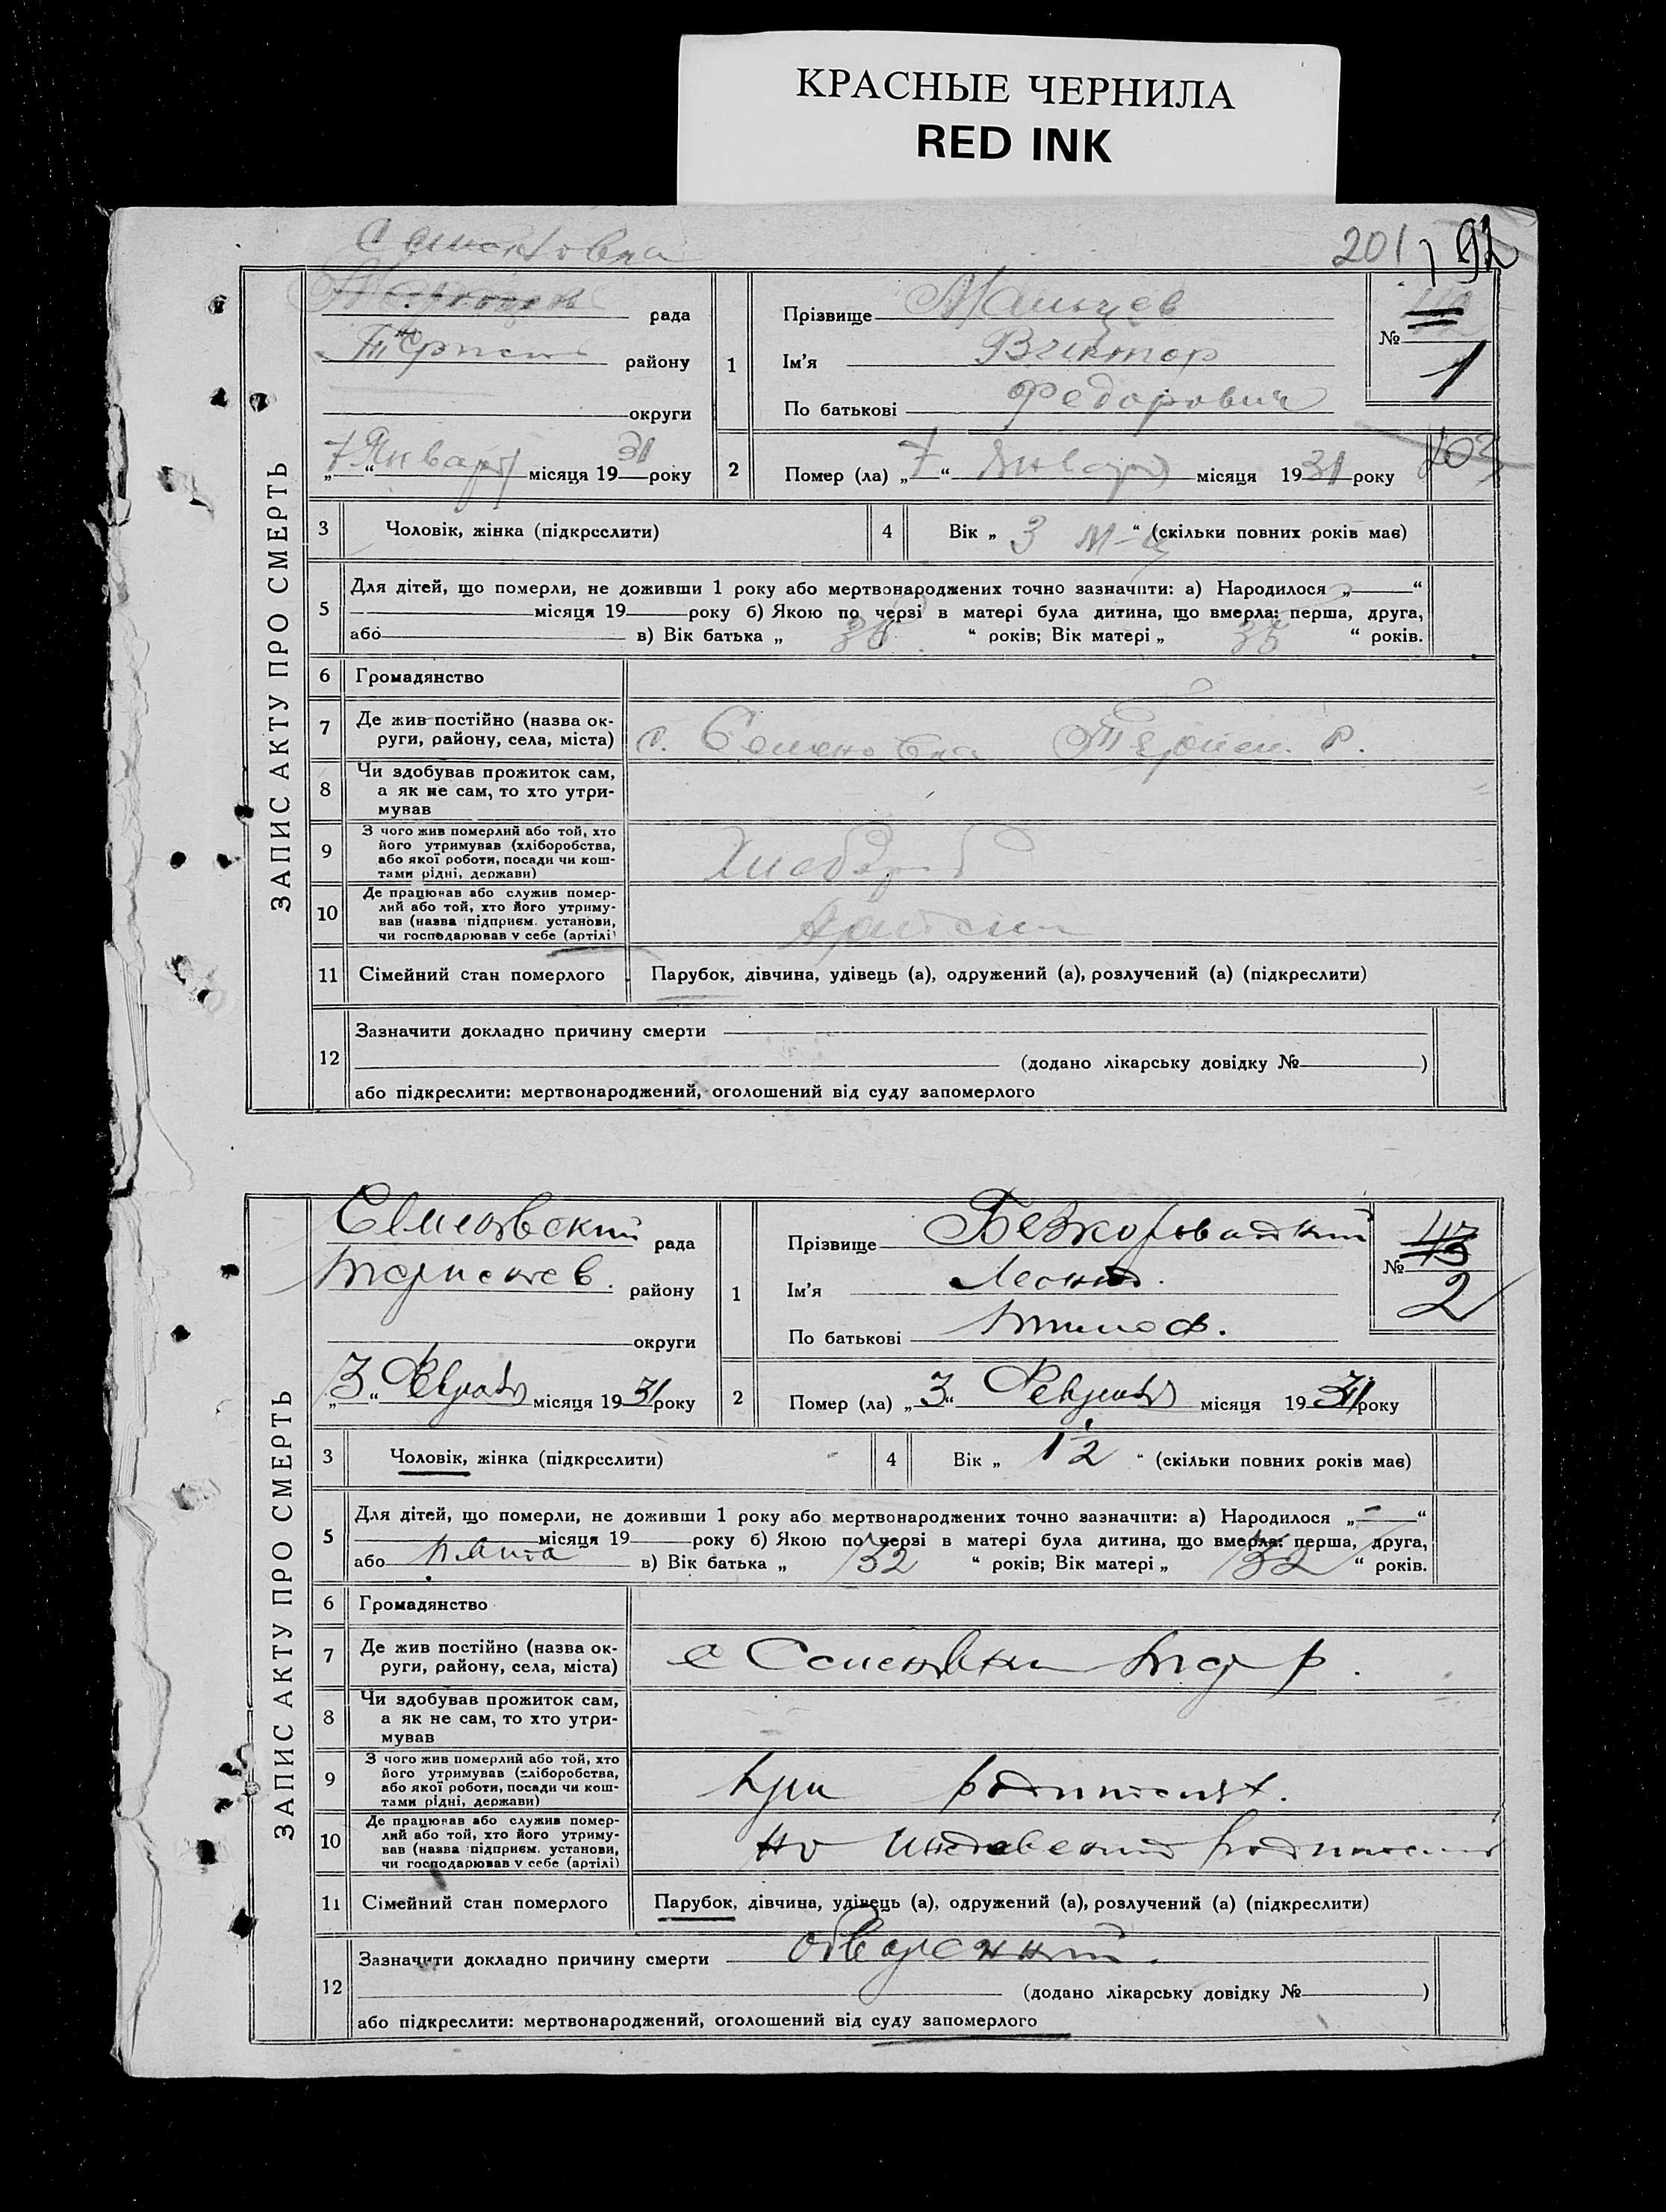 КРАСНЫЕ ЧЕРНИЛА
RED INK
201 92
Семеновка
рада
Терпен району
округи
„7“ Января місяця 1931 року
ЗАПИС АКТУ ПРО СМЕРТЬ
1
Прізвище Мальцев
Ім’я Виктор
По батькові Федорович
№ 1
2
Помер (ла) „7“ Января місяця 1931 року
3
Чоловік, жінка (підкреслити)
4
Вік „ 3 м-ц “ (скільки повних років має)
5
Для дітей, що померли, не доживши 1 року або мертвонароджених точно зазначити: а) Народилося „ “
місяця 19 року б) Якою по черзі в матері була дитина, що вмерла: перша, друга,
або в) Вік батька „ 36 “ років; Вік матері „ 35 “ років.
6
Громадянство
7
Де жив постійно (назва ок-
руги, району, села, міста)
с. Семеновка Терпен. р.
8
Чи здобував прожиток сам,
а як не сам, то хто утри-
мував
9
З чого жив померлий або той, хто
його утримував (хліборобства,
або якої роботи, посади чи кош-
тами рідні, держави)
10
Де працював або служив помер-
лий або той, хто його утриму-
вав (назва підприєм. установи,
чи господарював у себе (артілі)
11
Сімейний стан померлого
Парубок, дівчина, удівець (а), одружений (а), розлучений (а) (підкреслити)
12
Зазначити докладно причину смерти
(додано лікарську довідку № )
або підкреслити: мертвонароджений, оголошений від суду запомерлого
рада
району
округи
„3“ Февраля місяця 1931 року
ЗАПИС АКТУ ПРО СМЕРТЬ
1
Прізвище
Ім’я Леонид.
По батькові Тимоф.
№ 2
2
Помер (ла) „3“ Февраля місяця 1931 року
3
Чоловік, жінка (підкреслити)
4
Вік „ 12 “ (скільки повних років має)
5
Для дітей, що померли, не доживши 1 року або мертвонароджених точно зазначити: а) Народилося „ - “
місяця 19 року б) Якою по черзі в матері була дитина, що вмерла: перша, друга,
або в) Вік батька „ 32 “ років; Вік матері „ 32 “ років.
6
Громадянство
7
Де жив постійно (назва ок-
руги, району, села, міста)
с Семеновки р.
8
Чи здобував прожиток сам,
а як не сам, то хто утри-
мував
9
З чого жив померлий або той, хто
його утримував (хліборобства,
або якої роботи, посади чи кош-
тами рідні, держави)
При родителях.
10
Де працював або служив помер-
лий або той, хто його утриму-
вав (назва підприєм. установи,
чи господарював у себе (артілі)
11
Сімейний стан померлого
Парубок, дівчина, удівець (а), одружений (а), розлучений (а) (підкреслити)
12
Зазначити докладно причину смерти
(додано лікарську довідку № )
або підкреслити: мертвонароджений, оголошений від суду запомерлого